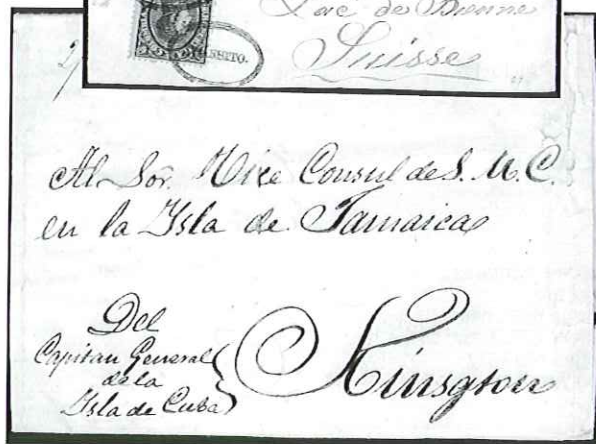 Lac de Bienne
Suisse
NSITO.
2/
Al Sor. Vice Consul de S. M. C.
en la Ysla de Jamaica
Del
Capitan General
de la
Ysla de Cuba
Kinsgton